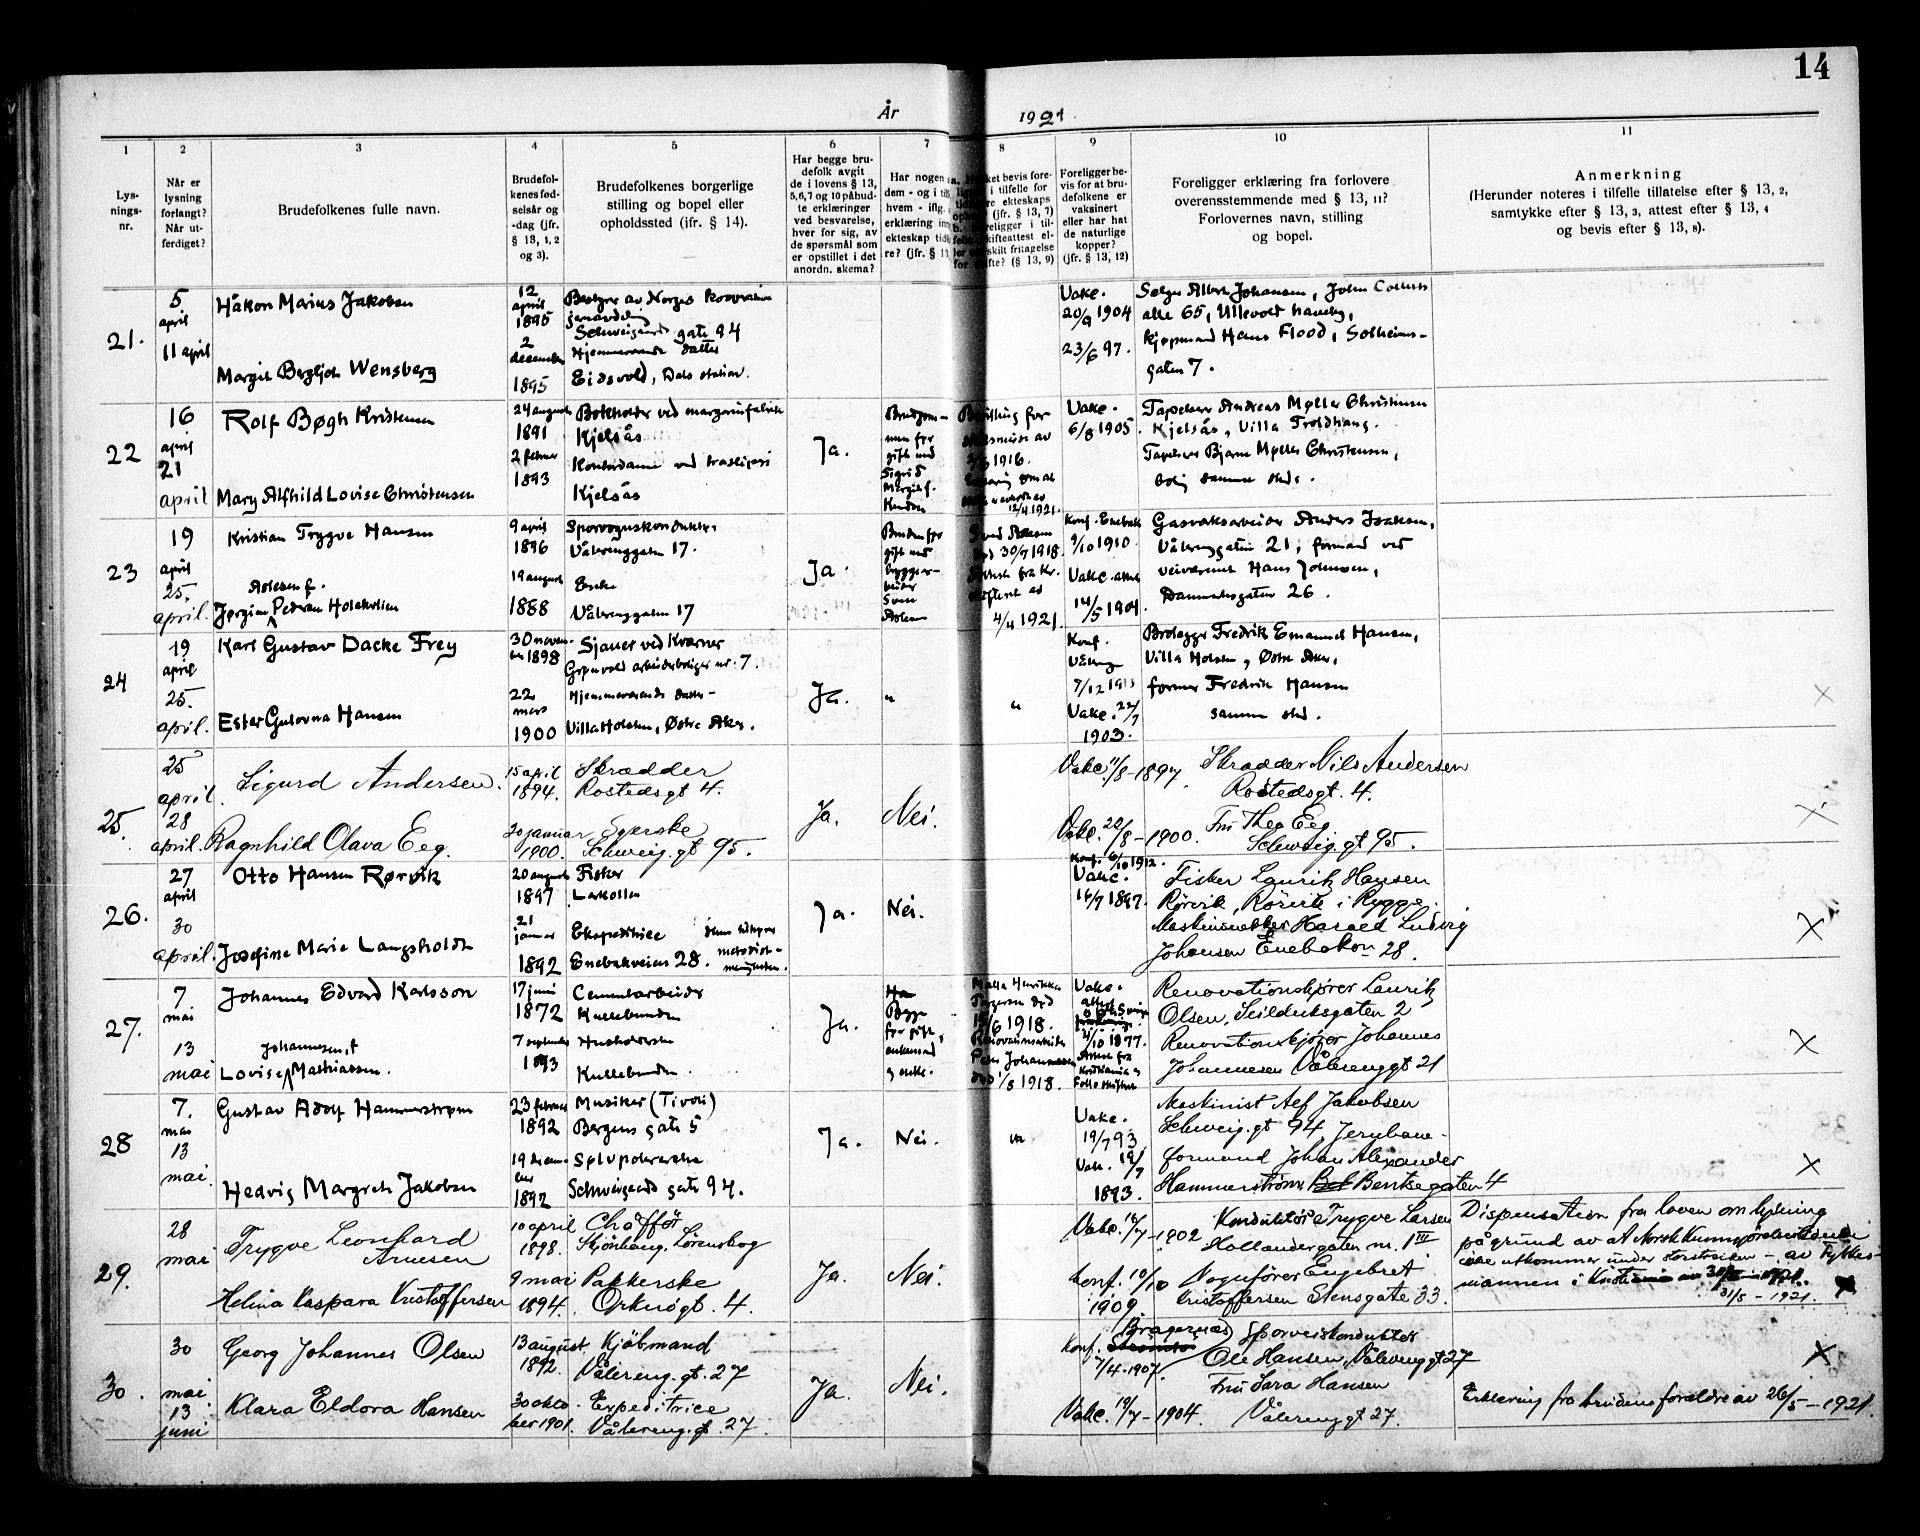 14
År 1921.
1
Lys-
nings-
nr.
2
Når er
lysning
forlangt?
Når ut-
ferdiget?
3
Brudefolkenes fulle navn.
4
Brudefol-
kenes fød-
selsår og
-dag (jfr.
§ 13, 1, 2
og 3).
5
Brudefolkenes borgerlige
stilling og bopel eller
opholdssted (jfr. § 14).
6
Har begge bru-
defolk avgit
de i lovens § 13,
5,6,7 og 10 påbud-
te erklæringer
ved besvarelse,
hver for sig, av
de spørsmål som
er opstillet i det
anordn. skema?
7
Har nogen
dem - og i
hvem - iflg.
erklæring
ekteskap
re? (jfr. § 13
8
bevis fore-
i tilfelle for
ekteskaps
(jfr. § 13, 7)
i til-
skifteattest el-
fritagelse
(§ 13, 9)
9
Foreligger be-
vis for at bru-
defolkene er
vaksinert
eller har hat
de naturlige
kopper?
(jfr. § 13, 12)
10
Foreligger erklæring fra forlovere
overensstemmende med § 13, 11?
Forlovernes navn, stilling
og bopel.
11
Anmerkning
(Herunder noteres i tilfelle tillatelse efter § 13, 2,
samtykke efter § 13, 3, attest efter § 13, 4
og bevis efter § 13, 8).
21.
5
april
11 april
Håkon Marius Jakobsen
Margit Bergljot Wensberg
12
april
1895
2
december
1895
Bestyrer av Norges
Schweigaards gate 94
Hjemmeværende datter
Eidsvold, Dals station.
Vakc.
20/9 1904
23/6 97.
Selger Albert Johansen, John Colletts
alle 65, Ullevold haveby,
kjøpmand Hans Flood, Solheims-
gaten 7.
22
16
april
21
april
Rolf Bøgh Kristensen
Mary Alfhild Lovise Christensen
24 august
1891
2 februar
1893
Bokholder ved margarinfabrik
Kjelsås
Kontordame ved
Kjelsås
Ja.
Brudgom-
men før
gift med
Sigrid
Margit f.
Knudsen
Bevilling for
1916.
12/4 1921.
Vakc.
6/8 1905.
Tapetserer Andreas Møller Christensen
Kjelsås, Villa Troldhaug.
Tapetserer Bjarne Møller Christensen,
bolig samme sted.
23
19
april
25.
april.
Kristian Trygve Hansen
Aslesen f.
Jørgine Pedrea Holakolien
9 april
1896
19 august
1888
Sporvognskonduktør
Vålerenggaten 17.
Enke
Vålerenggaten 17
Ja.
Bruden før
gift med
bygge-
Sven
Aslesen
død 30/7 1918.
4/4 1921.
Konf. Enebak
9/10 1910.
Vakc. attest
14/5 1904.
Gasverksarbeider Anders Isaksen,
Vålerenggaten 21, formand ved
veivæsenet Hans Johnsen,
Danmarksgaten 26.
24
19
april
25.
april.
Karl Gustav Dacke Frey
Ester Gulovna Hansen
30 novem-
ber 1898
22
mars
1900
Sjauer ved Kværner
Grønvold arbeiderboliger nr. 7.
Hjemmeværende datter-
Villa Holsten, Østre Aker.
Ja.
"
"
Konf.
Våleng
7/12 1913
Vakc. 22/7
1903.
Brolegger Fredrik Emanuel Hansen,
Villa Holsten, Østre Aker,
former Fredrik Hansen
samme sted.
25.
25
april.
28
april.
Sigurd Andersen.
Ragnhild Olava Eeg.
15 april
1894.
20 januar
1900.
Skrædder
Rostedsgt 4.
Syerske
Schweig.gt 95.
Ja.
Nei.
Vakc. 11/8-1897.
Vakc. 20/8-1900.
Skrædder Nils Andersen
Rostedsgt. 4.
Fru Thea Eeg
Schweig.gt 95.
26.
27
april
30
april.
Otto Hansen Rørvik
Josefine Marie Langsholdt
20 august
1897
21
januar
1892
Fisker
Larkollen
Ekspeditrice
Enebakveien 28.
Ja.
Nei.
Konf. 6/10 1912.
Vakc.
14/7 1897.
Fisker Lauritz Hansen
Rørvik, Rørvik i Rygge.
Maskinsnekker Harald Ludvig
Johansen Enebakvn 28.
27.
7.
mai
13
mai
Johannes Edvard Karlsson
Johannesen, f.
Lovise Mathiassen.
17 juni
1872
7 september
1893
Cementarbeider
Kullebunden
Husholderske
Kullebunden.
Ja.
Begge
før gift,
enkemand
og enke.
død
15/6 1918.
Renovationsarbeider
Peter Johannessen
død 1/8 1918.
Vakc.
attest
2/10 1877.
Attest fra
Kristiania og
Follo skifteret
Renovationskjører Lauritz
Olsen, Schildrüksgaten 2
Renovationskjører Johannes
Johannesen Vålerenggt 21
28
7.
mai
13
mai.
Gustav Adolf Hammerstrøm
Hedvig Margrete Jakobsen
23 februar
1892
19 decem-
ber
1892
Musiker (Tivoli)
Bergens gate 5
Sølvpolererske
Schweigaards gate 94.
Ja.
Nei.
"
Vakc.
19/7 93
Vakc. 19/7
1893.
Maskinist Alf Jakobsen
Schweig.gt 94, Jernbane-
formand Johan Alexander
Hammerstrøm, Bentsegaten 4
29.
28
mai
Trygve Leonhard
Arnesen
Helina Kaspara Kristoffersen
10 april
1898.
9 mai
1894.
Chåffør
Skjønhaug, Lørenskog
Pakkerske
Orknøgt. 4.
Ja.
Nei.
Vakc. 18/7-1902
Konf. 10/10
1909.
Konduktør Trygve Larsen
Hollandergaten nr. 1 III
Vognfører Engebret
Kristoffersen Stensgate 33.
Dispensation fra loven om lysning
på grund av at Norsk Kunngjørelsestidende
ikke utkommer under storstreiken - av Fylkes-
mannen i Kristiania av 30/5-1921.
31/5-1921.
30.
30
mai
13
juni
Georg Johannes Olsen
Klara Eldora Hansen
13 august
1892.
30 okto-
ber 1901.
Kjøbmand
Vålereng.gt. 27
Expeditrice
Vålereng.gt. 27.
Ja.
Nei.
Konf. Strømsø
(Bragernæs)
7/4-1907.
Vakc. 19/7-1904.
Sporveiskonduktør
Ole Hansen, Vålerenggt 27
Fru Sara Hansen
Vålerenggt 27.
Erklæring fra brudens foreldre av 26/5-1921.